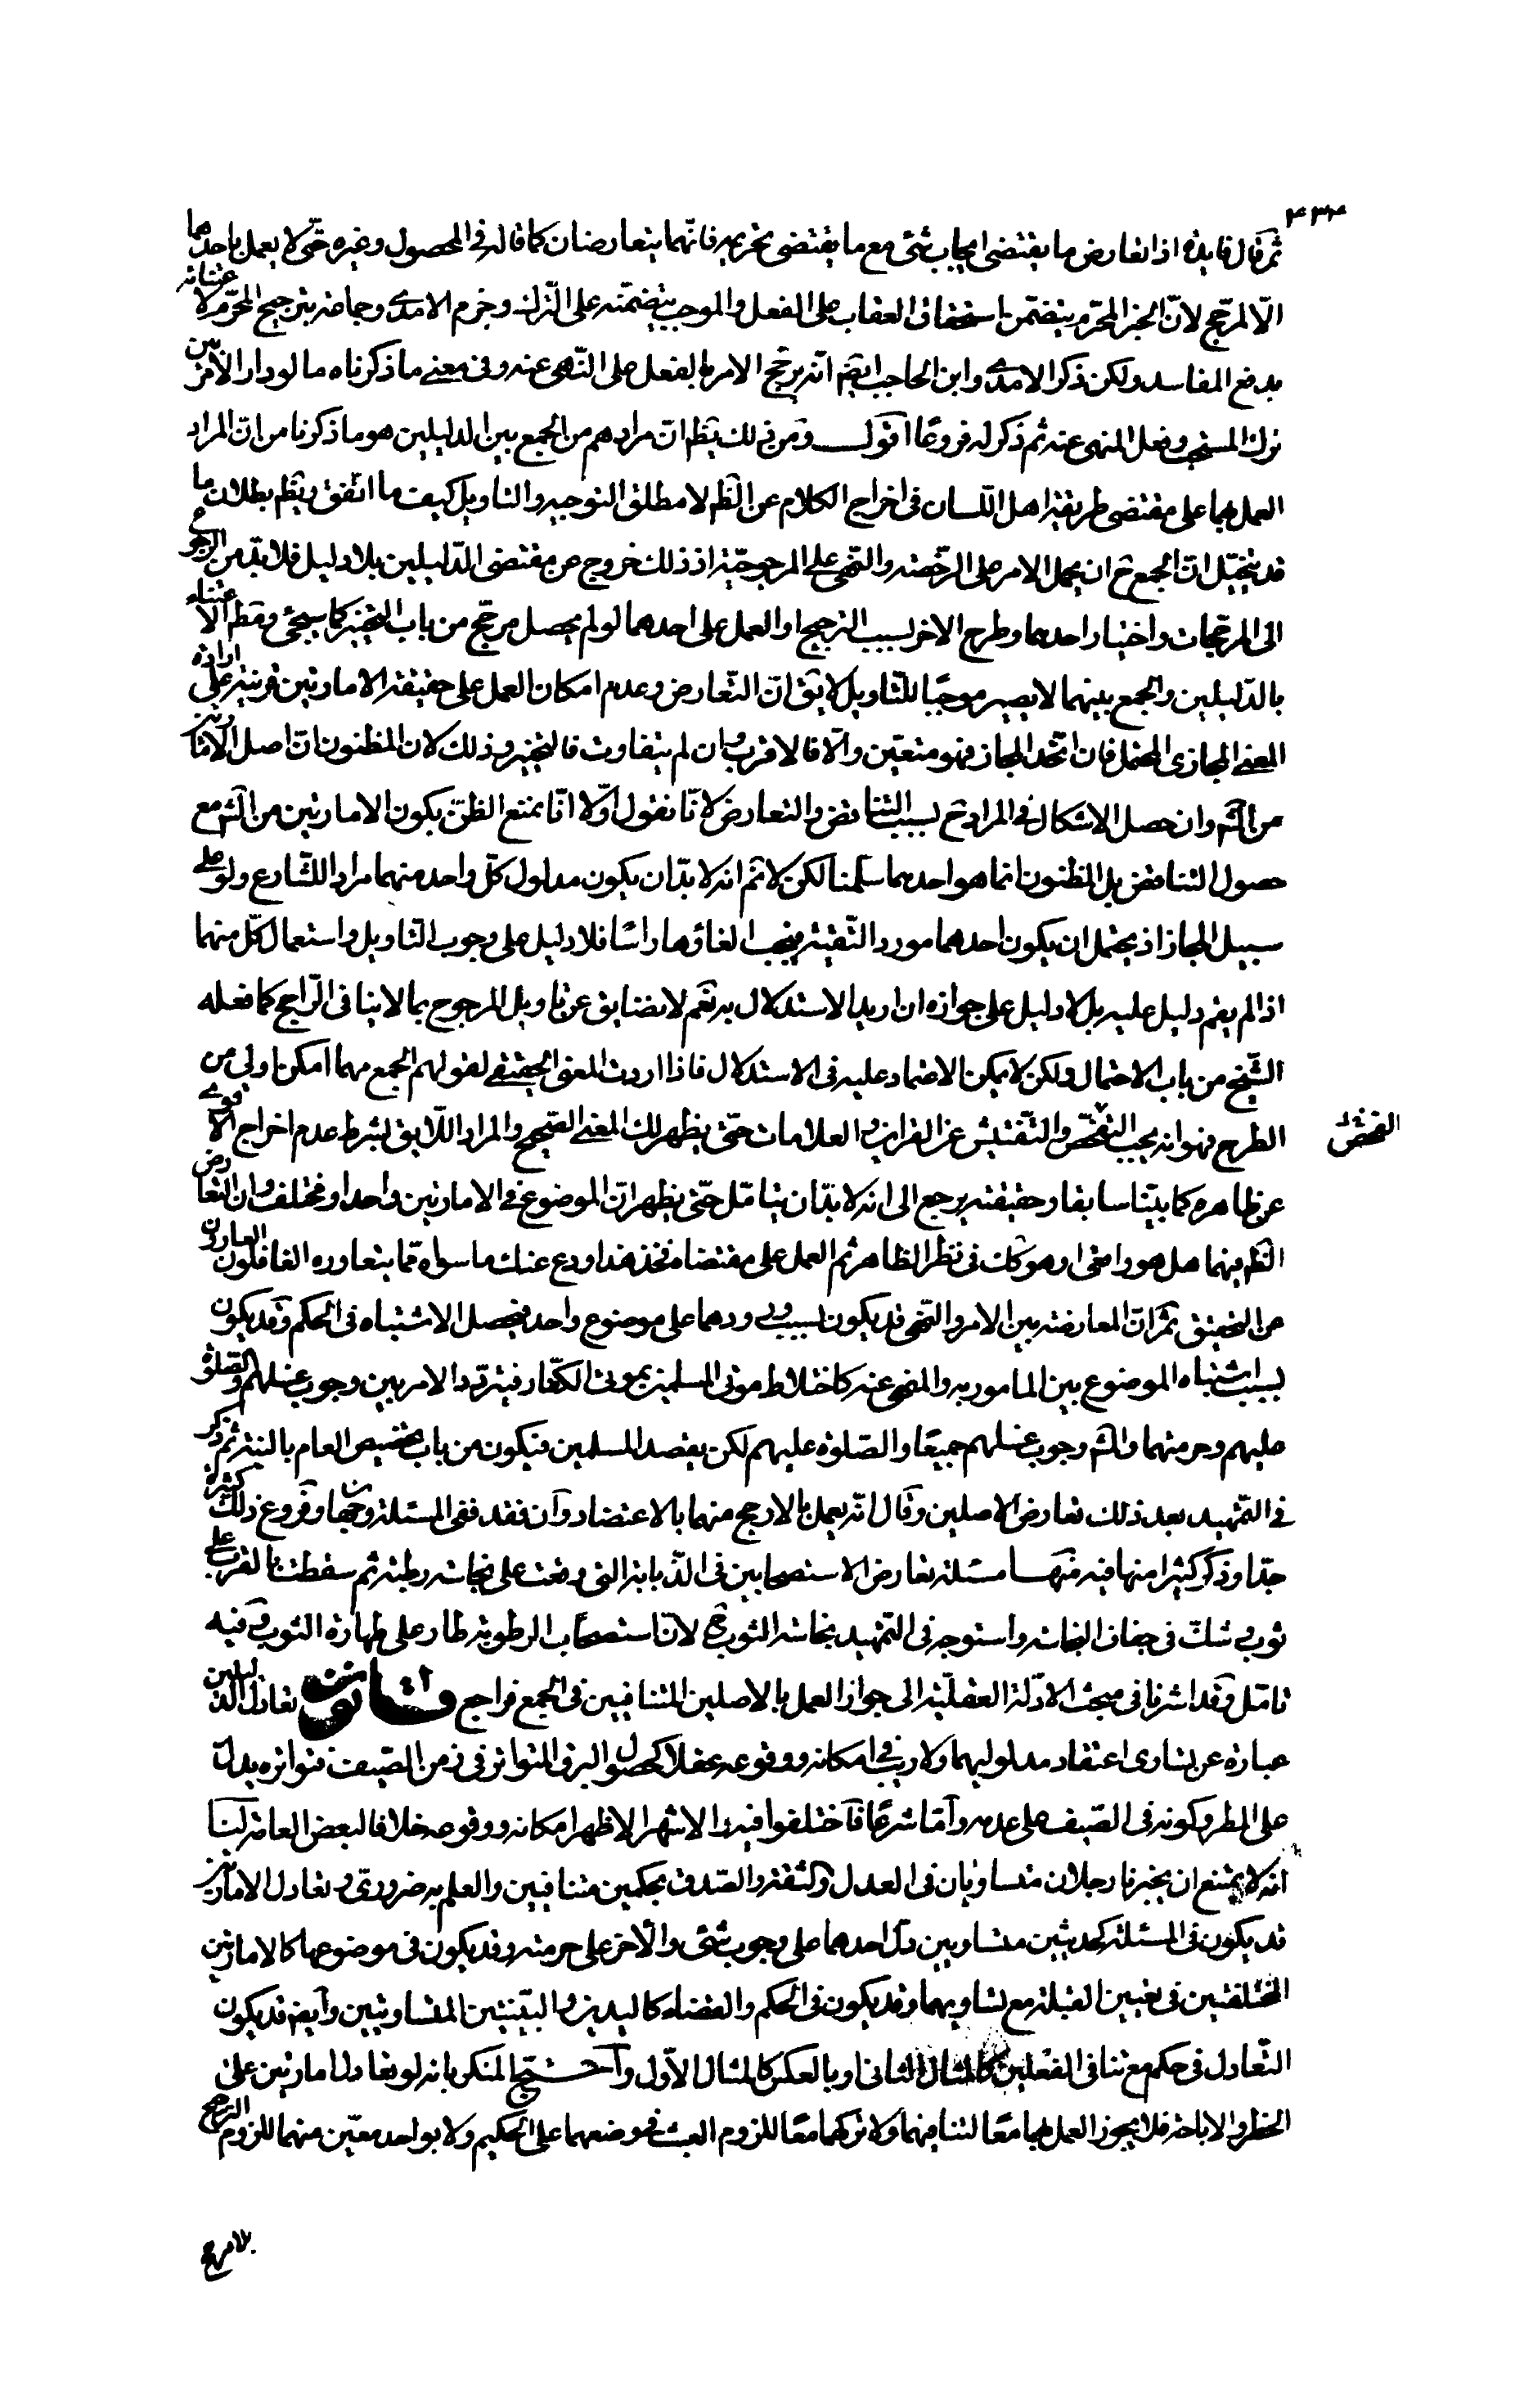 ۴۳۴
ثم قال فايدة اذا تعارض ما يقتضى ايجاب شئ مع ما يقتضى تحريمه فانهما يتعارضان كما قاله فى المحصول وغيره حتى لا يعمل باحدهما
الا لمرجح لان الخبر المحرم يتضمن استحقاق العقاب على الفعل والموجب يتضمنه على الترك وجزم الامدى وجماعة بترجيح المحرم لاعتنائه
بدفع المفاسد ولكن ذكر الامدى وابن الحاجب ايضم انه يرجح الامر بالفعل على النهى عنه وفى معنى ما ذكرناه ما لو دار الامر بين
ترك المستحب وفعل المنهى عنه ثم ذكر له فروعا اقول ومن ذلك يظم ان مرادهم من الجمع بين الدليلين هو ما ذكرنا من ان المراد
العمل بهما على مقتضى طريقة اهل اللسان فى اخراج الكلام عن الظم لا مطلق التوجيه والتاويل كيف ما اتفق ويظم بطلان ما
قد يتخيل ان الجمع ح ان يحمل الامر على الرخصة والنهى على المرجوحية اذ ذلك خروج عن مقتضى الدليلين بلا دليل فلا بد من الرجوع
الى المرجحات واختيار احدهما وطرح الاخر بسبب الترجيح او العمل على احدهما لو لم يحصل مرجح من باب التخيير كما سيجئ وقطم الاعتناء
بالدليلين والجمع بينهما لا يصير موجبا للتاويل لا يق ان التعارض وعدم امكان العمل على حقيقة الامارتين قرينة على ارادة
المعنى المجازى المحتمل فان اتحد المجاز فهو متعين والا فالاقرب وان لم يتفاوت فالتخيير وذلك لان المظنون ان اصل الامارتين
من الشم وان حصل الاشكال فى المراد ح بسبب التناقض والتعارض لانا نقول اولا انا نمنع الظن بكون الامارتين من الشم مع
حصول التناقض بل المظنون انما هو احدهما سلمنا لكن لا نم انه لا بد ان يكون مدلول كل واحد منهما مراد الشارع ولو على
سبيل المجاز اذ يحتمل ان يكون احدهما مورد التقية فيجب الغاؤها راسا فلا دليل على وجوب التاويل واستعمال كل منهما
اذا لم يقم دليل عليه بل لا دليل على جوازه ان اريد الاستدلال به نعم لا نضايق عن تاويل المرجوح بما لا ينافى الراجح كما فعله
الشيخ من باب الاحتمال ولكن لا يمكن الاعتماد عليه فى الاستدلال فاذا اردت المعنى الحقيقى لقولهم الجمع مهما امكن اولى من
الطرح فهو انه يجب التفحص والتفتيش عن القراين والعلامات حتى يظهر لك المعنى الصحيح والمراد اللايق بشرط عدم اخراج الاقوى
عن ظاهره كما بينا سابقا وحقيقته يرجع الى انه لا بد ان يتامل حتى يظهر ان الموضوع فى الامارتين واحد او مختلف وان التعارض
الظم بينهما هل هو واقعى او هو كك فى نظر الظاهر ثم العمل على مقتضاه فخذ هذا ودع عنك ما سواه مما يتعاوره الغافلون العارون
عن التحقيق ثم ان المعارضة بين الامر والنهى قد يكون بسبب ورودهما على موضوع واحد فيحصل الاشتباه فى الحكم وقد يكون
بسبب اشتباه الموضوع بين المامور به والمنهى عنه كاختلاط موتى المسلمين بموتى الكفار فيتردد الامر بين وجوب غسلهم والصلوة
عليهم وحرمتهما والشم وجوب غسلهم جميعا والصلوة عليهم لكن بقصد المسلمين فيكون من باب تخصيص العام بالنية ثم ذكر
فى التمهيد بعد ذلك تعارض الاصلين وقال انه يعمل بالارجح منهما بالاعتضاد وان فقد ففى المسئلة وجهان وفروع ذلك كثيرة
جدا وذكر كثيرا منها فيه فمنها مسئلة تعارض الاستصحابين فى الذبابة التى وقعت على نجاسة رطبة ثم سقطت بالقرب على
ثوب وشك فى جفاف النجاسة واستوجه فى التمهيد نجاسة الثوب ح لان استصحاب الرطوبة طار على طهارة الثوب وفيه
تامل وقد اشرنا فى مبحث الادلة العقلية الى جواز العمل بالاصلين المتنافيين فى الجمع فراجع قانون تعادل الدليلين
عبارة عن تساوى اعتقاد مدلوليهما ولا ريب فى امكانه ووقوعه عقلا كحصول البرق المتواتر فى زمن الصيف فتواتره يدل
على المطر وكونه فى الصيف على عدمه واما شرعا فاختلفوا فيه والاشهر الاظهر امكانه ووقوعه خلافا لبعض العامة لنا
انه لا يمتنع ان يخبرنا رجلان متساويان فى العدل والثقة والصدق بحكمين متنافيين والعلم به ضرورى وتعادل الامارتين
قد يكون فى المسئلة كحديثين متساويين دل احدهما على وجوب شئ والاخر على حرمته وقد يكون فى موضوعها كالامارتين
المختلفتين فى تعيين القبلة مع تساويهما وقد يكون فى الحكم والقضاء كاليدين والبينتين المتساويتين وايضم قد يكون
التعادل فى حكم مع تنافى الفعلين كالمثال الثانى او بالعكس كالمثال الاول واحتج المنكر بانه لو تعادل امارتين على
الحظر والاباحة فلا يجوز العمل بهما معا لتنافيهما ولا تركهما معا للزوم العبث فى وضعهما على الحكيم ولا بواحد معين منهما للزوم الترجيح